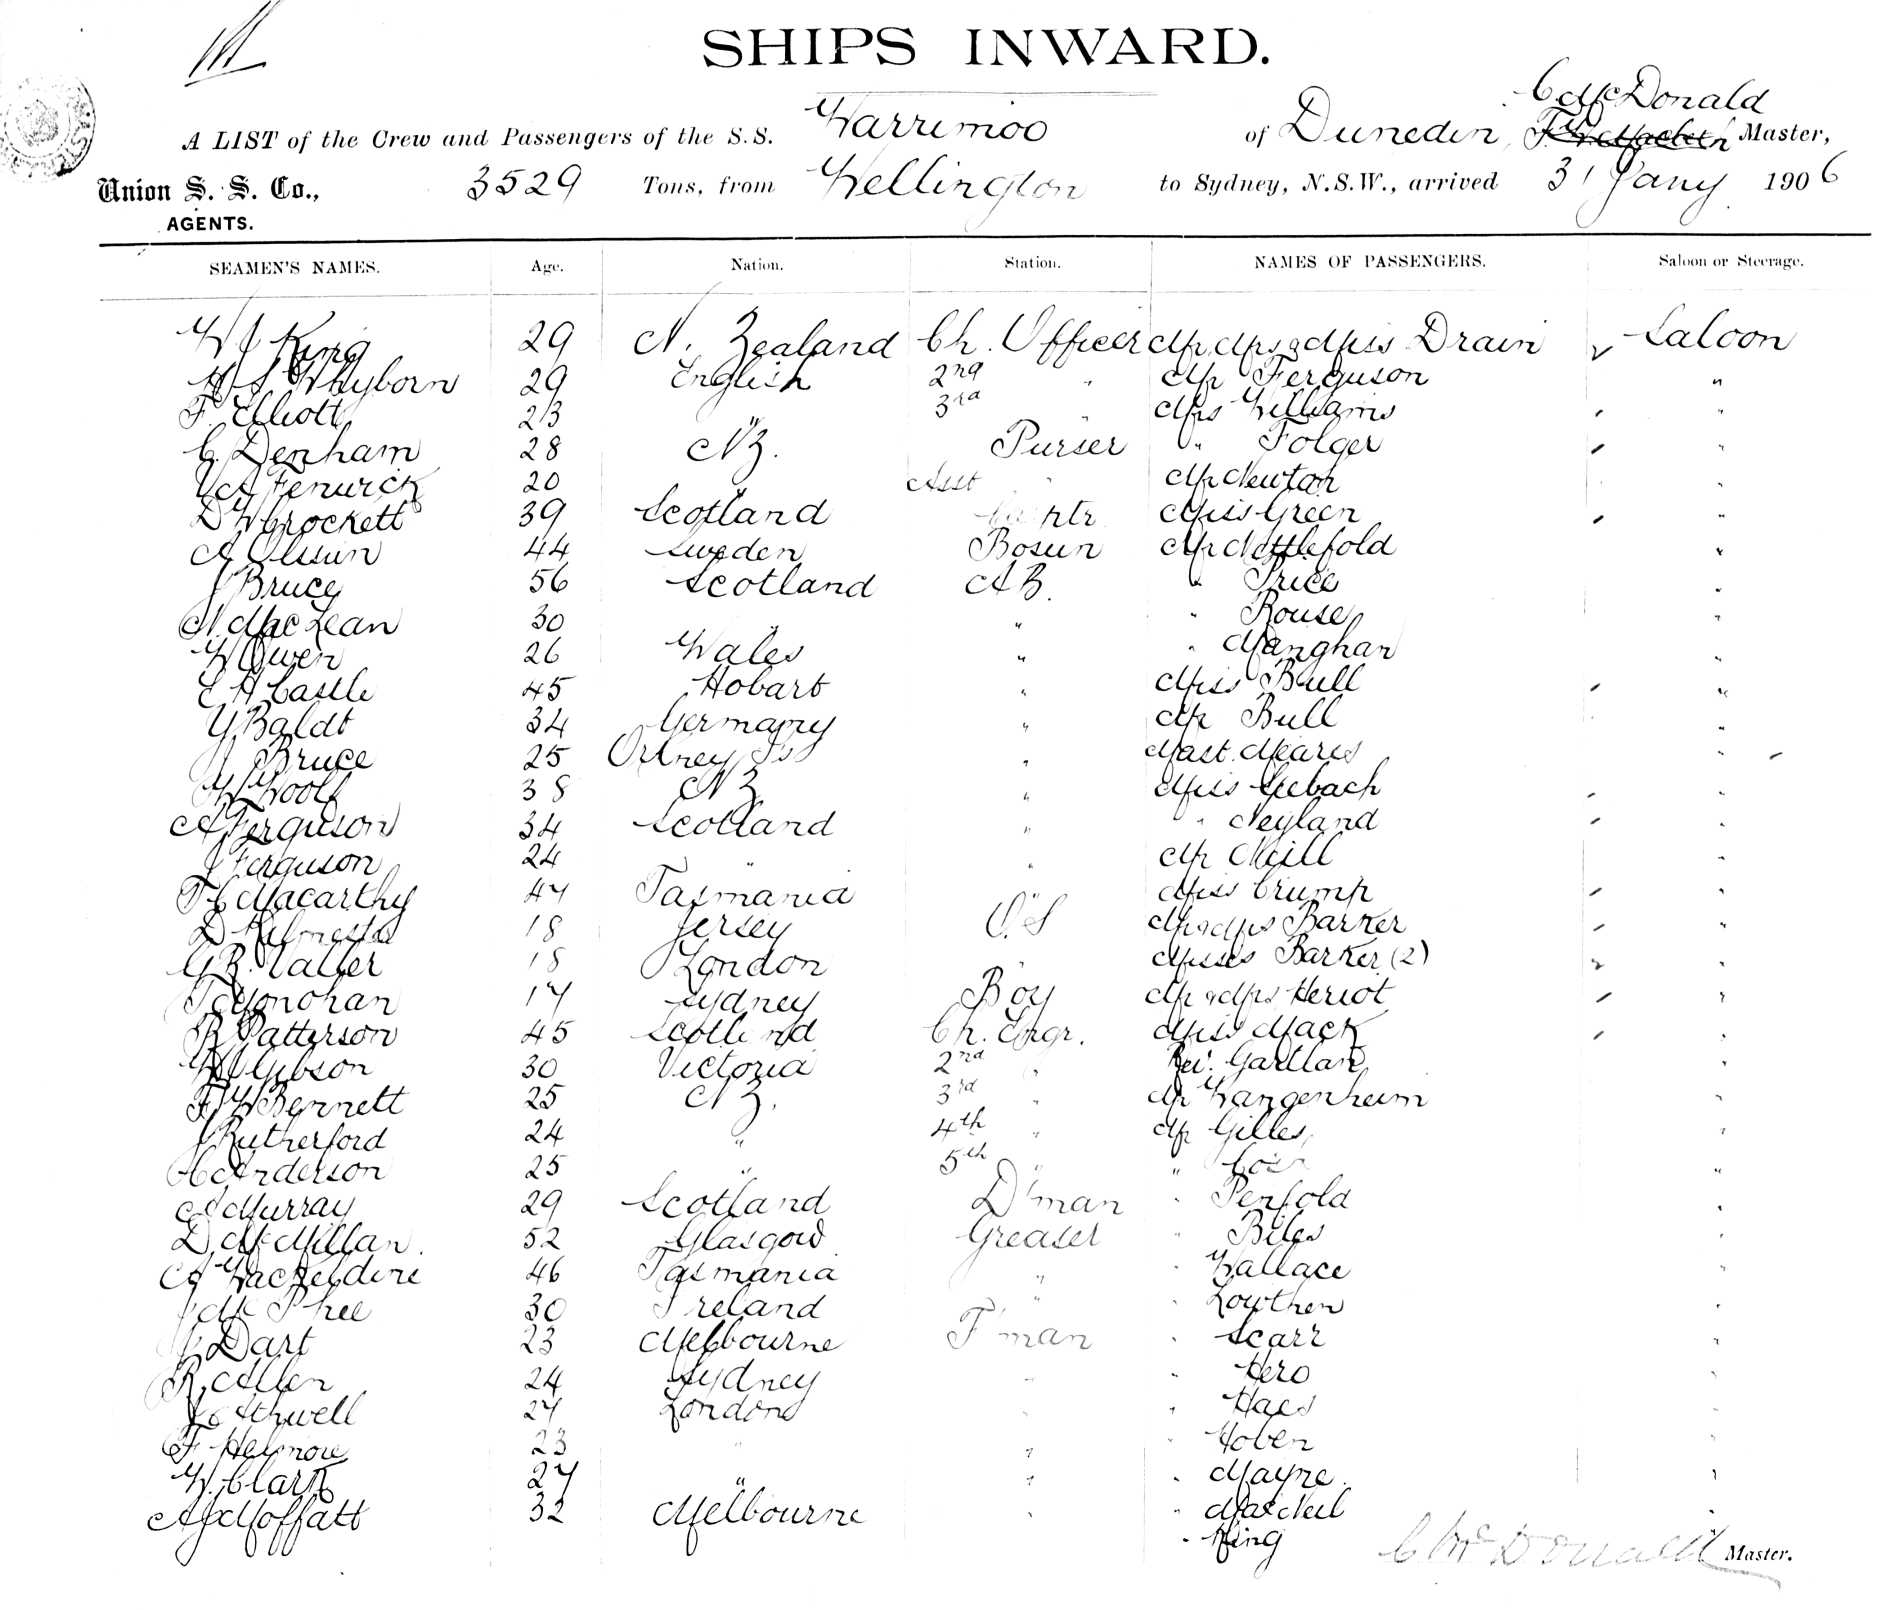 SHIPS INWARD.
C McDonald
A LIST of the Crew and Passengers of the S.S. Warrimoo of Dunedin, Master,
Union S. S. Co., 3529 Tons, from Wellington to Sydney, N.S.W., arrived 31 Jany 1906
AGENTS.
SEAMEN'S NAMES. Age. Nation. Station. NAMES OF PASSENGERS. Saloon or Steerage.
W J King 29 N. Zealand Ch. Officer Mr, Mrs & Miss Drain Saloon
Whyborn 29 English 2nd " Mr Ferguson "
F. Elliott 23 " 3rd " Mrs Williams "
C. Denham 28 NZ. Purser " Folger "
Fenwick 20 " Asst " Mr Newton "
D W Crockett 39 Scotland Miss Green "
A Olssun 44 Sweden Bosun Mr Nettlefold "
J Bruce 56 Scotland AB. " Price "
N. MacLean 30 " " " Rouse "
W Owen 26 Wales " " Manghan "
E H Castle 45 Hobart " Miss Bull "
Y Baldt 34 Germany " Mr Bull "
J Bruce 25 Orkney Is " Mast. Meares "
W Woolf 38 NZ " Miss Seebach "
A Ferguson 34 Scotland " " Neyland "
J Ferguson 24 " " Mr Neill "
T C Macarthy 47 Tasmania " Miss Crump "
D 18 Jersey O.S Mr & Mrs Barker "
18 London " Misses Barker (2) "
T Monohan 17 Sydney Boy Mr & Mrs Heriot "
R Patterson 45 Scotland Ch. Engr. Miss Mack "
Gibson 30 Victoria 2nd " Rev. Gartlan "
F W Bennett 25 NZ. 3rd " Mr Wangenheim "
J Rutherford 24 " 4th " Mr Gilles "
Anderson 25 " 5th " " "
A J Murray 29 Scotland D'man " Penfold "
D McMillan. 52 Glasgow Greaser " Biles "
A Wackeldine 46 Tasmania " " Wallace "
J McPhee 30 Ireland " " Lowthen "
J Dart 23 Melbourne F'man " Scarr "
R. Allen 24 Sydney " " Hero "
27 London " " Haes "
F Helmore 23 " " " Hoben "
W. Clark 27 " " " Mayne. "
A J Moffatt 32 Melbourne " " MacNeil "
" King
C McDonald Master.